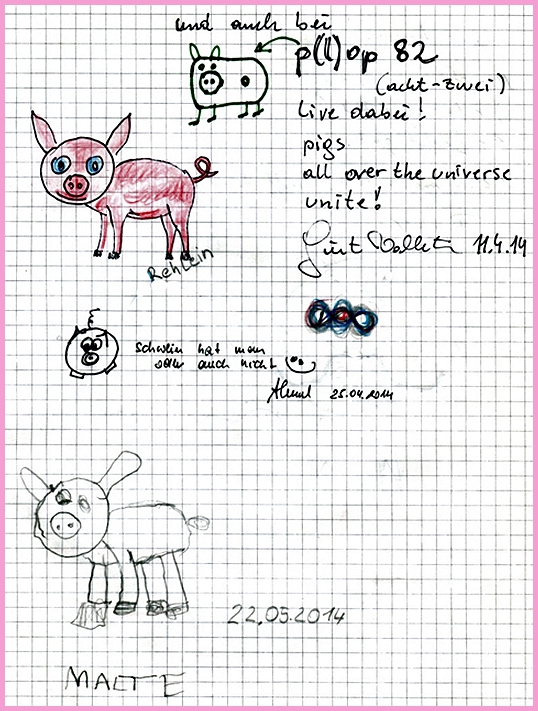 und auch bei
p(l)op 82
(acht-zwei)
live dabei!
pigs
all over the universe
unite!
11.4.14
Rehlein
Schwein hat man
oder auch nicht
25.04.2014
22.05.2014
MALTE